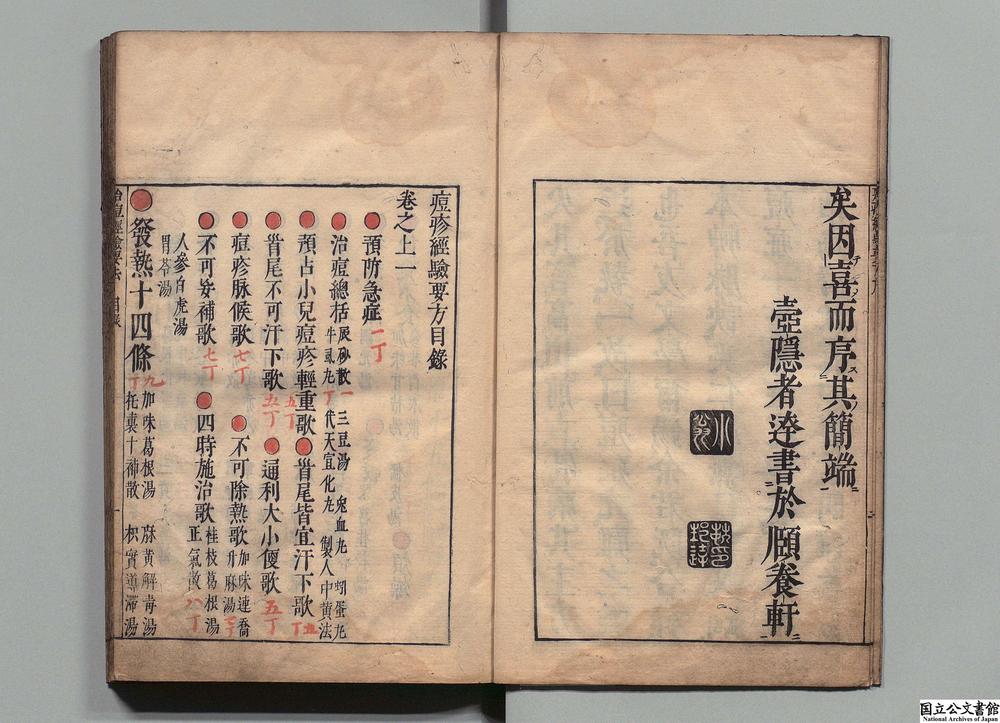 矣因喜而序其簡端
壺隱者遼書於頤養軒
痘疹經驗要方目錄
卷之上一
預防急症 一丁
治痘總括 辰砂散 一丁 三豆湯 兔血丸
牛虱丸 代天宜化丸 製人中黄法
預占小兒痘疹輕重歌 五丁 首尾皆宜汗下歌 五丁
首尾不可汗下歌 五丁 通利大小便歌 五丁
痘疹脉候歌 七丁 不可除熱歌 加味連喬
升麻湯
不可妄補歌 七丁 四時施治歌 桂枝葛根湯
正氣散 八丁
人參白虎湯
胃苓湯
發熱十四條 九丁 加味葛根湯 麻黄解毒湯
托裏十神散 枳實導滯湯
治痘經驗要法 目錄 一
国立公文書館
National Archives of Japan